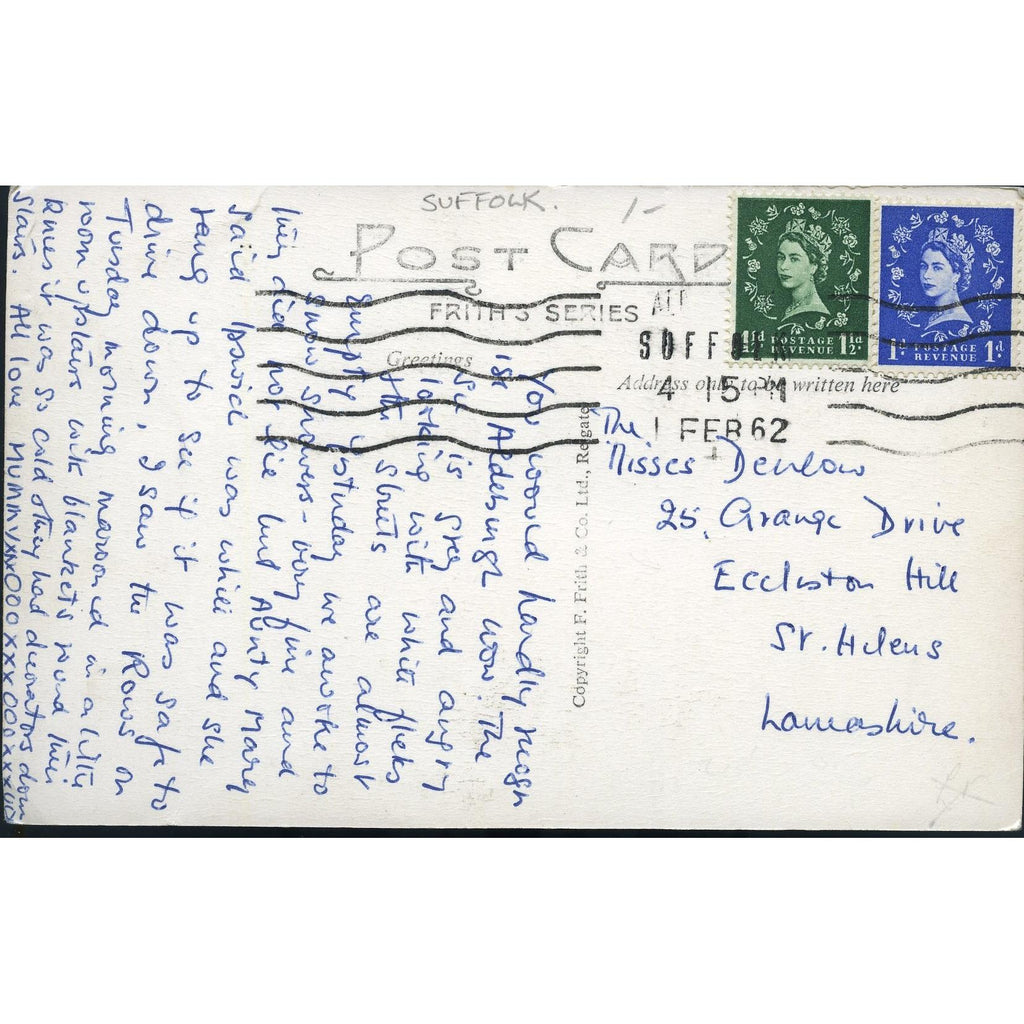 SUFFOLK. 1/-
POST CARD
FRITH'S SERIES
Greetings
Address only to be written here
SUFFOLK
4 15 PM
1 FEB 62
1½d POSTAGE REVENUE 1½d
1d POSTAGE REVENUE 1d
Copyright F. Frith & Co. Ltd., Reigate
The
Misses Denlow
25, Grange Drive
Eccleston Hill
St. Helens
Lancashire.
You would hardly recgn
ise Aldeburgh now. The
Sea is grey and angry
looking with white flecks
The streets are almost
empty. Yesterday we awoke to
snow showers - very fine and
this did not lie but Aunty Mary
said Ipswich was white and she
rang up to see if it was safe to
drive down, I saw the Rows on
Tuesday morning marooned in a little
room upstairs with blankets round their
knees it was so cold & they had decorators down
stairs. All love Mummy xxx000xxx000xxx00